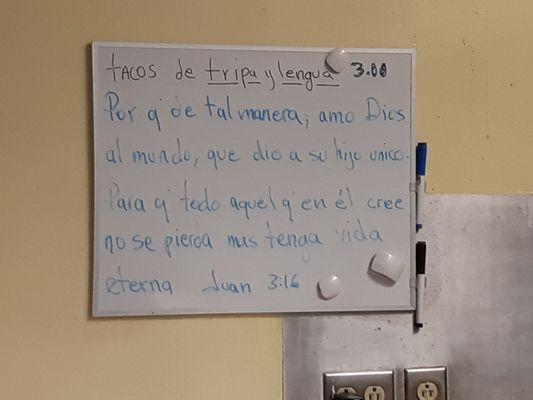 tacos de tripa y lengua 3.00
Por q' de tal manera; amo Dios
al mundo, que dio a su hijo unico.
Para q' todo aquel q' en él cree
no se pierda mas tenga vida
eterna Juan 3:16